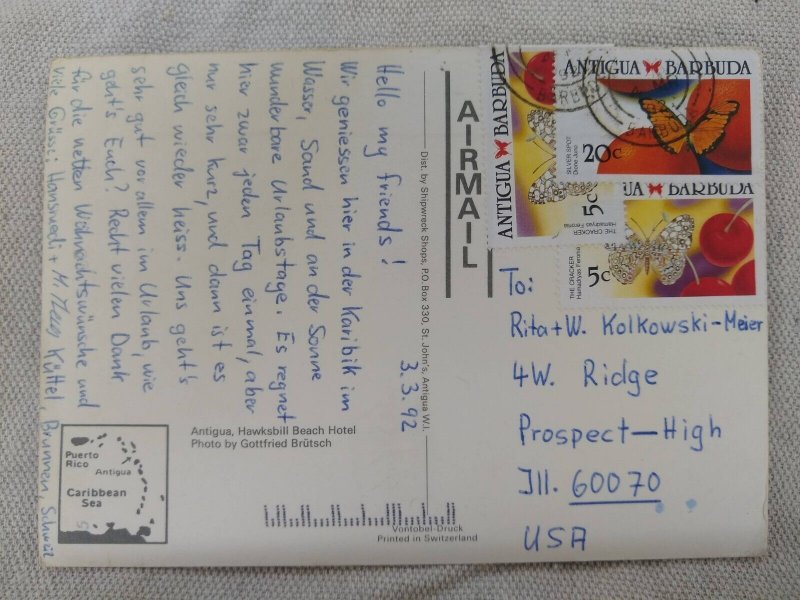 Hello my friends!
3.3.92
Wir geniessen hier in der Karibik im
Wasser, Sand und an der Sonne
wunderbare Urlaubstage. Es regnet
hier zwar jeden Tag einmal, aber
nur sehr kurz, und dann ist es
gleich wieder heiss. Uns geht's
sehr gut vor allem im Urlaub, wie
geht's Euch? Recht vielen Dank
für die netten Weihnachtswünsche und
viele Grüsse: Hansruedi + M. Küttel, Brunnen, Schweiz
Antigua, Hawksbill Beach Hotel
Photo by Gottfried Brütsch
Puerto
Rico
Antigua
Caribbean
Sea
Dist. by Shipwreck Shops, P.O. Box 330, St. John's, Antigua W.I.
Vontobel-Druck
Printed in Switzerland
AIRMAIL
ANTIGUA BARBUDA
5c
THE CRACKER
Hamadryas Feronia
ANTIGUA BARBUDA
20c
SILVER SPOT
Dione Juno
GUA BARBUDA
5c
THE CRACKER
Hamadryas Feronia
To:
Rita + W. Kolkowski-Meier
4W. Ridge
Prospect-High
Ill. 60070
USA